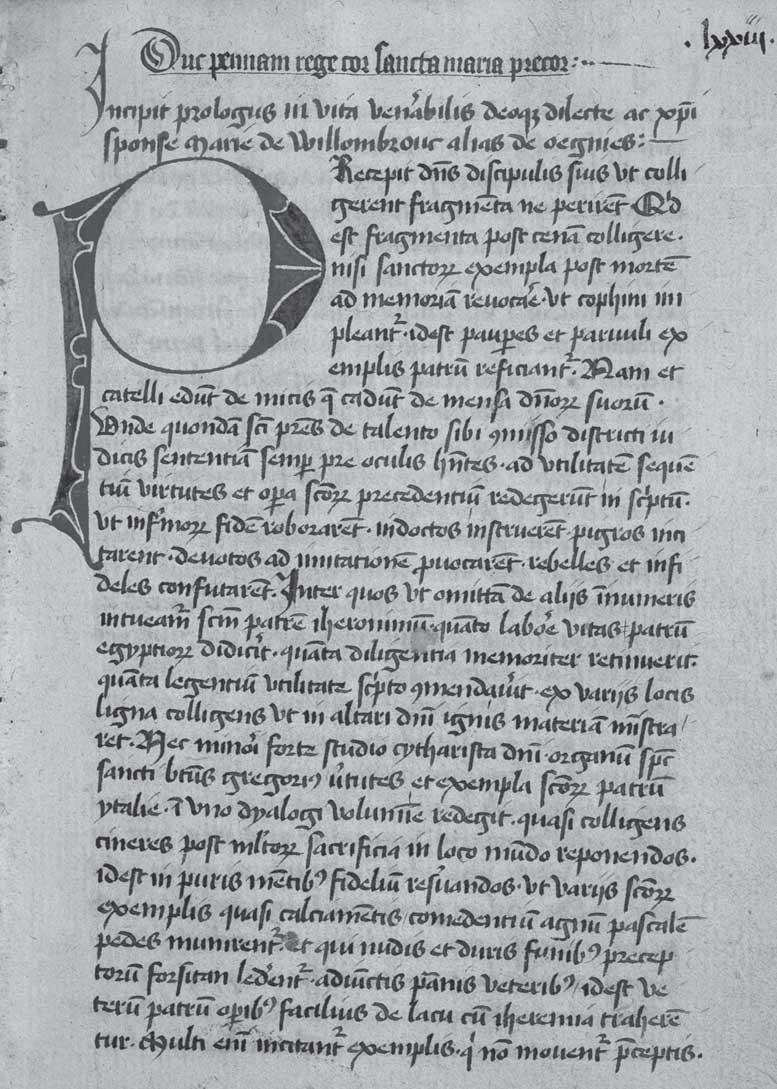 lxxiii.
Duc pennam rege cor sancta maria precor:
Incipit prologus in vita ven̄abilis deoqꝫ dilecte ac xp̄i
sponse Marie de Willombrouc alias de oegnies:
PRecepit dn̄s discipulis suis vt colli
gerent fragmēta ne perirēt Qd̓
est fragmenta post cenā colligere.
nisi sanctoꝝ exempla post mortē
ad memoriā reuocar̄e. vt cophini im
pleant᷑. idest paup̲es et paruuli ex
emplis patrū reficiant᷑. Nam et
catelli edūt de micis q̄ cadūt de mensa dn̄oꝝ suorū.
Vnde quondā sc̄i pr̄es de talento sibi ꝯmisso districti iu
dicis sententiā semp̲ pre oculis hn̄tes. ad vtilitatē sequē
tiū virtutes et op̲a scōꝝ precedentiū redegerūt in sc̓ptū.
vt infirmoꝝ fidē roborarēt. indoctos instruerēt pigros inci
tarent. deuotos ad imitationē ꝓuocarēt. rebelles et infi
deles confutarēt. Inter quos vt omittā de alijs īnumeris
intueam᷑ scm̄ patrē iheronimū. quāto labor̄e vitas patrū
egyptioꝝ didic̓it. quāta diligentia memoriter retinuerit.
quāta legentiū vtilitate sc̓pto ꝯmendau̓it. ex varijs locis
ligna colligens vt in altari dn̄i ignis materiam mīstra
ret. Nec minori forte studio cytharista dn̄i. organū sp̄c
sancti bt̄us gregoriꝰ v̓tutes et exempla scōꝝ patrū
ytalie. ī vno dyalogi volumīe redegit. quasi colligens
cineres post ml̓toꝝ sacrificia in loco mūdo reponendos.
idest in puris mētibꝰ fideliū res̓uandos. vt varijs scōꝝ
exemplis quasi calciamētis comedentiū agnū pascalē
pedes munirent᷑. et qui nudis et duris funibꝰ precep
torū forsitan led̓ent᷑. adiūctis pānis veteribꝰ. idest ve
terū patrū op̲ibꝰ facilius de lacu cū iheremia traherē
tur. Multi em̄ incitant᷑ exemplis. q̓ nō mouent᷑ p̄ceptis.